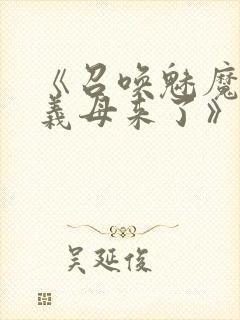 《召唤魅魔
義母来了》
吴延俊